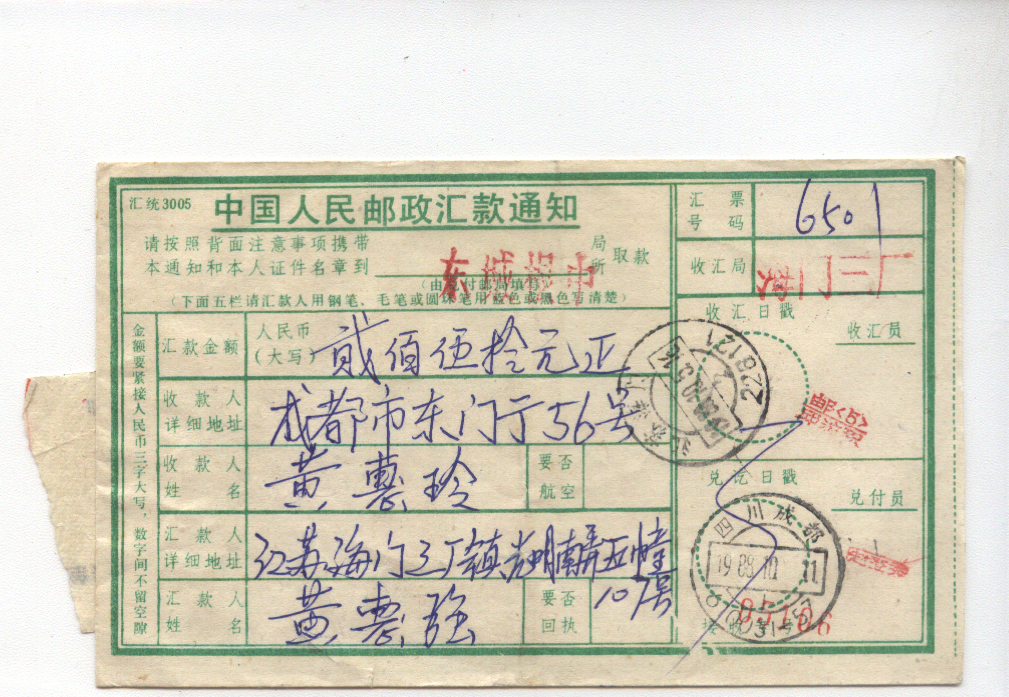 汇统3005
中国人民邮政汇款通知
请按照背面注意事项携带
本通知和本人证件名章到 局所 取款
东城根中
(由兑付邮局填写)
(下面五栏请汇款人用钢笔、毛笔或圆珠笔用蓝色或黑色写清楚)
金额要紧接人民币三字大写,数字间不留空隙
汇款金额 人民币(大写) 貳佰伍拾元正
收款人详细地址 成都市东门厅56号
收款人姓名 黄惠玲 要否航空
汇款人详细地址 江苏海门三厂镇
汇款人姓名 黄惠强 要否回执
10号
汇票号码 6501
收汇局 门三厂
收汇日戳 收汇员
226121
兑讫日戳 兑付员
四川成都
11
05106
接收号码